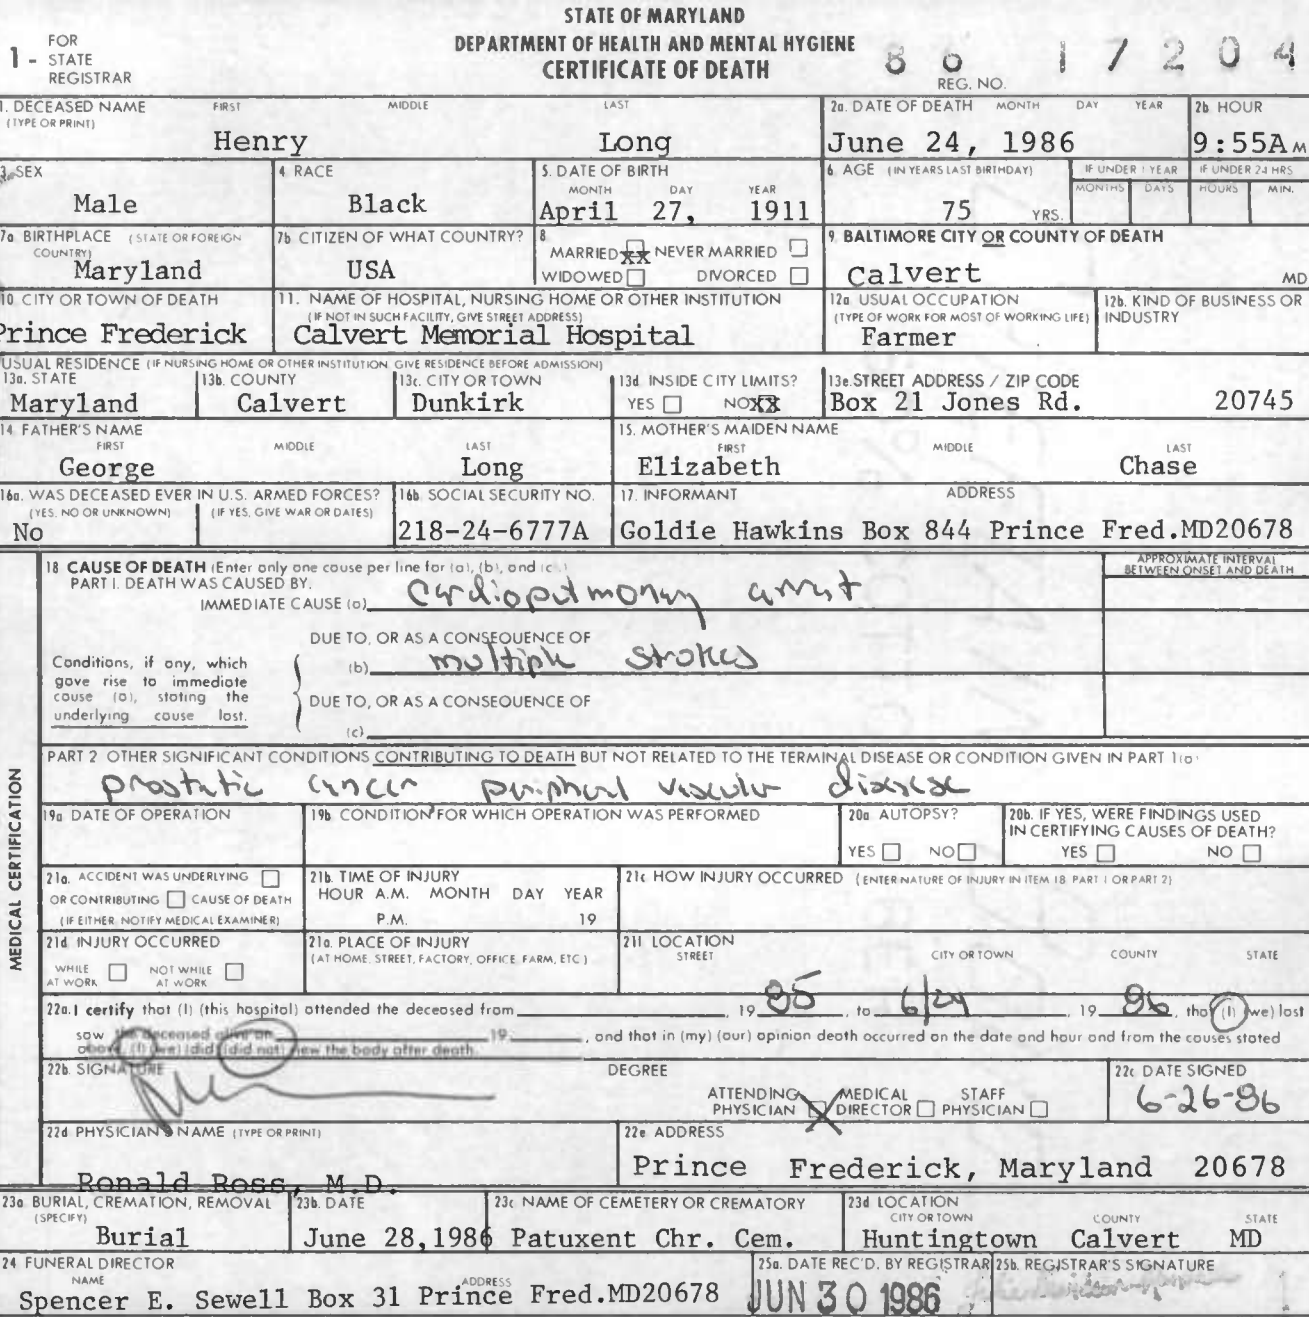 STATE OF MARYLAND
DEPARTMENT OF HEALTH AND MENTAL HYGIENE
CERTIFICATE OF DEATH
1 - FOR STATE REGISTRAR
86 17204
REG. NO.
1. DECEASED NAME (TYPE OR PRINT) FIRST MIDDLE LAST
Henry Long
2a. DATE OF DEATH MONTH DAY YEAR
June 24, 1986
2b. HOUR
9:55A M
3. SEX
Male
4. RACE
Black
5. DATE OF BIRTH MONTH DAY YEAR
April 27, 1911
6. AGE (IN YEARS LAST BIRTHDAY)
75 YRS.
IF UNDER 1 YEAR MONTHS DAYS
IF UNDER 24 HRS HOURS MIN.
7a. BIRTHPLACE (STATE OR FOREIGN COUNTRY)
Maryland
7b. CITIZEN OF WHAT COUNTRY?
USA
8. MARRIED xx NEVER MARRIED
WIDOWED DIVORCED
9. BALTIMORE CITY OR COUNTY OF DEATH
Calvert MD
10. CITY OR TOWN OF DEATH
Prince Frederick
11. NAME OF HOSPITAL, NURSING HOME OR OTHER INSTITUTION
(IF NOT IN SUCH FACILITY, GIVE STREET ADDRESS)
Calvert Memorial Hospital
12a. USUAL OCCUPATION
(TYPE OF WORK FOR MOST OF WORKING LIFE)
Farmer
12b. KIND OF BUSINESS OR INDUSTRY
USUAL RESIDENCE (IF NURSING HOME OR OTHER INSTITUTION GIVE RESIDENCE BEFORE ADMISSION)
13a. STATE
Maryland
13b. COUNTY
Calvert
13c. CITY OR TOWN
Dunkirk
13d. INSIDE CITY LIMITS?
YES NO XX
13e. STREET ADDRESS / ZIP CODE
Box 21 Jones Rd. 20745
14. FATHER'S NAME FIRST MIDDLE LAST
George Long
15. MOTHER'S MAIDEN NAME FIRST MIDDLE LAST
Elizabeth Chase
16a. WAS DECEASED EVER IN U.S. ARMED FORCES?
(YES, NO OR UNKNOWN) (IF YES, GIVE WAR OR DATES)
No
16b. SOCIAL SECURITY NO.
218-24-6777A
17. INFORMANT ADDRESS
Goldie Hawkins Box 844 Prince Fred.MD20678
MEDICAL CERTIFICATION
18. CAUSE OF DEATH (Enter only one cause per line for (a), (b), and (c).)
APPROXIMATE INTERVAL BETWEEN ONSET AND DEATH
PART I. DEATH WAS CAUSED BY.
IMMEDIATE CAUSE (a) Cardiopulmonary arrest
DUE TO, OR AS A CONSEQUENCE OF
(b) multiple strokes
Conditions, if any, which gave rise to immediate cause (a), stating the underlying cause last.
DUE TO, OR AS A CONSEQUENCE OF
(c)
PART 2 OTHER SIGNIFICANT CONDITIONS CONTRIBUTING TO DEATH BUT NOT RELATED TO THE TERMINAL DISEASE OR CONDITION GIVEN IN PART 1(a)
prostatic cancer peripheral vascular disease
19a. DATE OF OPERATION
19b. CONDITION FOR WHICH OPERATION WAS PERFORMED
20a. AUTOPSY?
YES NO
20b. IF YES, WERE FINDINGS USED IN CERTIFYING CAUSES OF DEATH?
YES NO
21a. ACCIDENT WAS UNDERLYING
OR CONTRIBUTING CAUSE OF DEATH
(IF EITHER, NOTIFY MEDICAL EXAMINER)
21b. TIME OF INJURY
HOUR A.M. MONTH DAY YEAR
P.M. 19
21c. HOW INJURY OCCURRED (ENTER NATURE OF INJURY IN ITEM 18 PART 1 OR PART 2)
21d. INJURY OCCURRED
WHILE AT WORK NOT WHILE AT WORK
21e. PLACE OF INJURY
(AT HOME, STREET, FACTORY, OFFICE, FARM, ETC.)
21f. LOCATION
STREET CITY OR TOWN COUNTY STATE
22a. I certify that (I) (this hospital) attended the deceased from 19 85, to 6/24 19 86, that (I) (we) last
saw the deceased alive on 19 , and that in (my) (our) opinion death occurred on the date and hour and from the causes stated
above, (I) (we) (did) (did not) view the body after death.
22b. SIGNATURE
DEGREE
ATTENDING PHYSICIAN X MEDICAL DIRECTOR STAFF PHYSICIAN
22c. DATE SIGNED
6-26-86
22d. PHYSICIAN'S NAME (TYPE OR PRINT)
Ronald Ross, M.D.
22e. ADDRESS
Prince Frederick, Maryland 20678
23a. BURIAL, CREMATION, REMOVAL (SPECIFY)
Burial
23b. DATE
June 28,1986
23c. NAME OF CEMETERY OR CREMATORY
Patuxent Chr. Cem.
23d. LOCATION
CITY OR TOWN COUNTY STATE
Huntingtown Calvert MD
24. FUNERAL DIRECTOR
NAME ADDRESS
Spencer E. Sewell Box 31 Prince Fred.MD20678
25a. DATE REC'D. BY REGISTRAR
JUN 30 1986
25b. REGISTRAR'S SIGNATURE